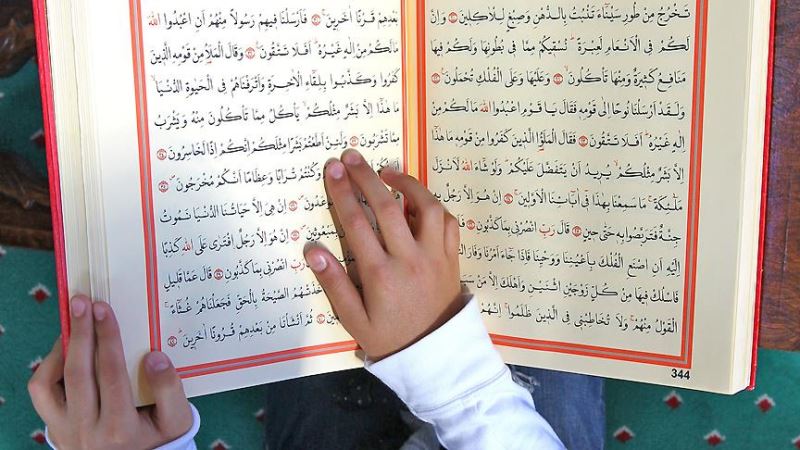 تَخْرُجُ مِنْ طُورِ سَيْنَاءَ تَنْبُتُ بِالدُّهْنِ وَصِبْغٍ لِلْاٰكِلِينَ وَاِنَّ
لَكُمْ فِي الْاَنْعَامِ لَعِبْرَةً نُسْقِيكُمْ مِمَّا فِي بُطُونِهَا وَلَكُمْ فِيهَا
مَنَافِعُ كَثِيرَةٌ وَمِنْهَا تَأْكُلُونَ وَعَلَيْهَا وَعَلَى الْفُلْكِ تُحْمَلُونَ
وَلَقَدْ اَرْسَلْنَا نُوحًا اِلٰى قَوْمِهِ فَقَالَ يَا قَوْمِ اعْبُدُوا اللّٰهَ مَالَكُمْ مِنْ
اِلٰهٍ غَيْرُهُ اَفَلَا تَتَّقُونَ فَقَالَ الْمَلَؤُا الَّذِينَ كَفَرُوا مِنْ قَوْمِهِ مَا هٰذَا
اِلَّا بَشَرٌ مِثْلُكُمْ يُرِيدُ اَنْ يَتَفَضَّلَ عَلَيْكُمْ وَلَوْ شَاءَ اللّٰهُ لَاَنْزَلَ
مَلٰئِكَةً مَا سَمِعْنَا بِهٰذَا فِي اٰبَائِنَا الْاَوَّلِينَ اِنْ هُوَ اِلَّا رَجُلٌ بِهِ
جِنَّةٌ فَتَرَبَّصُوا بِهِ حَتّٰى حِينٍ قَالَ رَبِّ انْصُرْنِي بِمَا كَذَّبُونِ
اِلَيْهِ اَنِ اصْنَعِ الْفُلْكَ بِاَعْيُنِنَا وَوَحْيِنَا فَاِذَا جَاءَ اَمْرُنَا وَفَارَ
فَاسْلُكْ فِيهَا مِنْ كُلٍّ زَوْجَيْنِ اثْنَيْنِ وَاَهْلَكَ اِلَّا مَنْ سَبَقَ
الْقَوْلُ مِنْهُمْ وَلَا تُخَاطِبْنِي فِي الَّذِينَ ظَلَمُوا اِنَّهُمْ
344
بَعْدِهِمْ قَرْنًا اٰخَرِينَ فَاَرْسَلْنَا فِيهِمْ رَسُولًا مِنْهُمْ اَنِ اعْبُدُوا اللّٰهَ
مَالَكُمْ مِنْ اِلٰهٍ غَيْرُهُ اَفَلَا تَتَّقُونَ وَقَالَ الْمَلَاُ مِنْ قَوْمِهِ الَّذِينَ
كَفَرُوا وَكَذَّبُوا بِلِقَاءِ الْاٰخِرَةِ وَاَتْرَفْنَاهُمْ فِي الْحَيٰوةِ الدُّنْيَا
مَا هٰذَا اِلَّا بَشَرٌ مِثْلُكُمْ يَأْكُلُ مِمَّا تَأْكُلُونَ مِنْهُ وَيَشْرَبُ
مِمَّا تَشْرَبُونَ وَلَئِنْ اَطَعْتُمْ بَشَرًا مِثْلَكُمْ اِنَّكُمْ اِذًا لَخَاسِرُونَ
وَكُنْتُمْ تُرَابًا وَعِظَامًا اَنَّكُمْ مُخْرَجُونَ
تُوعَدُونَ اِنْ هِيَ اِلَّا حَيَاتُنَا الدُّنْيَا نَمُوتُ
بِمَبْعُوثِينَ اِنْ هُوَ اِلَّا رَجُلٌ افْتَرٰى عَلَى اللّٰهِ كَذِبًا
رَبِّ انْصُرْنِي بِمَا كَذَّبُونِ قَالَ عَمَّا قَلِيلٍ
فَاَخَذَتْهُمُ الصَّيْحَةُ بِالْحَقِّ فَجَعَلْنَاهُمْ غُثَاءً
ثُمَّ اَنْشَأْنَا مِنْ بَعْدِهِمْ قُرُونًا اٰخَرِينَ